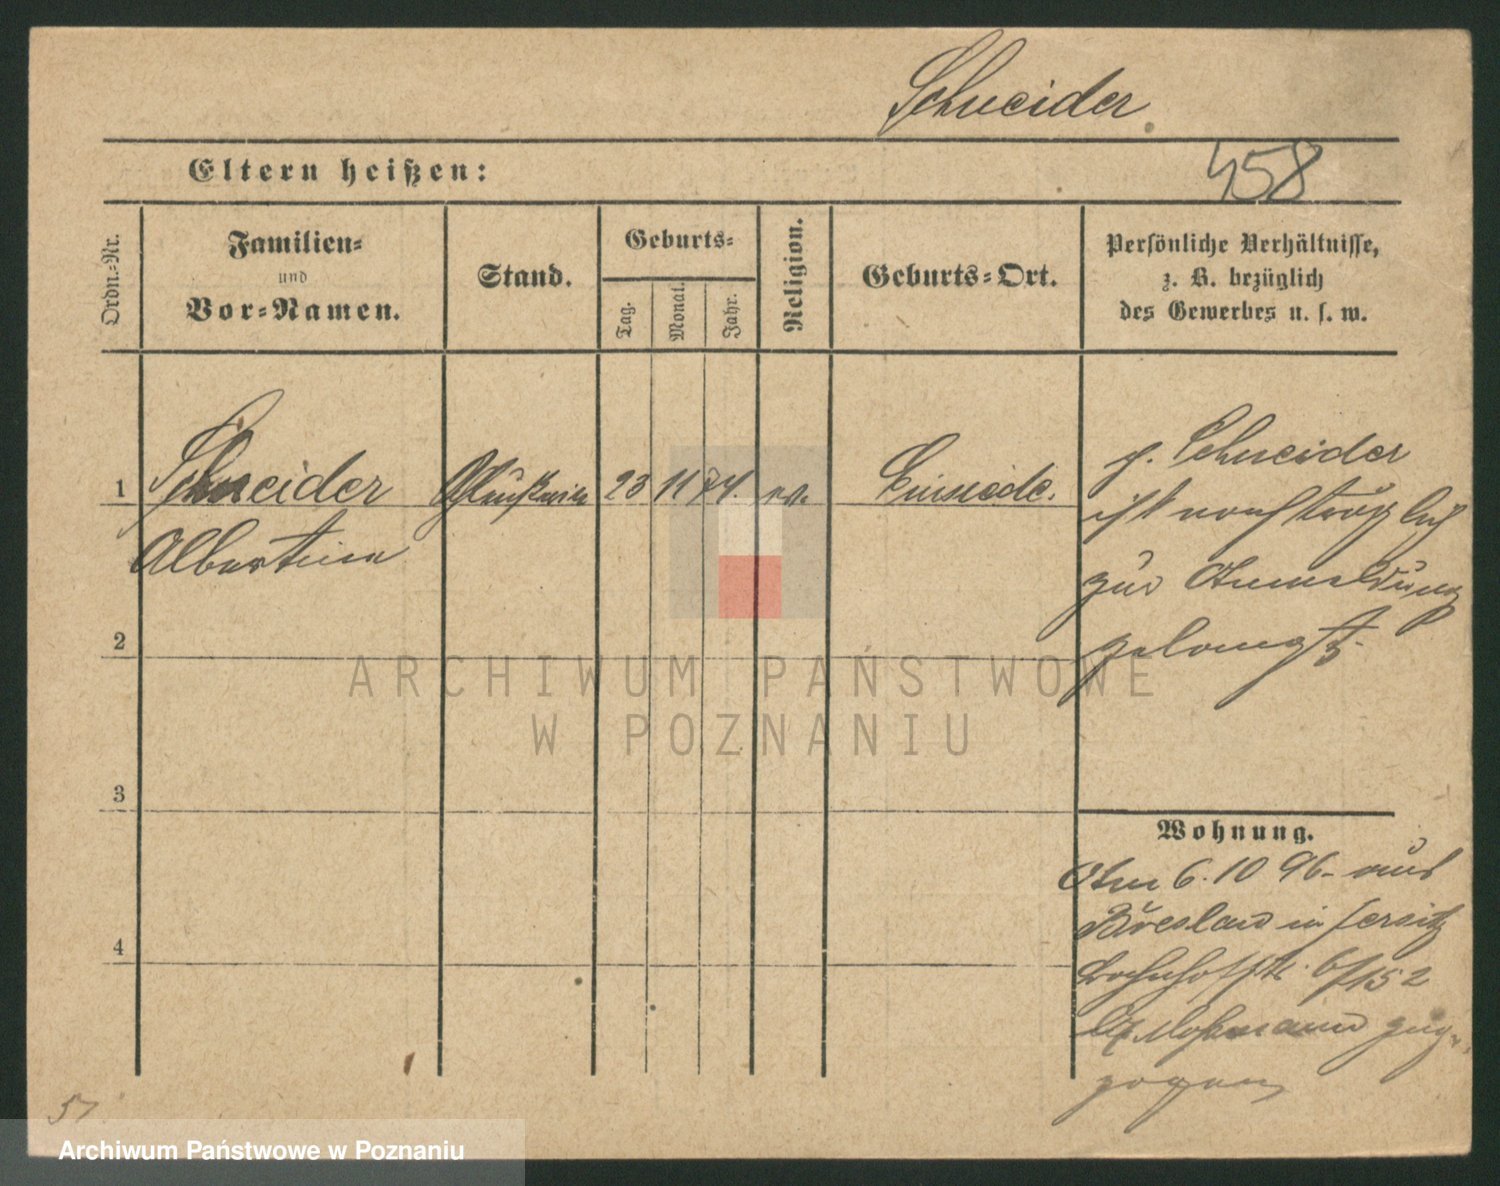 Schneider
458
Eltern heißen:
Ordn.-Nr.
Familien-
und
Vor-Namen.
Stand.
Geburts-
Tag.
Monat.
Jahr.
Religion.
Geburts-Ort.
Persönliche Verhältnisse,
z. B. bezüglich
des Gewerbes u. s. w.
1
Schneider
Albertine
23
11
74.
ev.
Einsiedel.
p. Schneider
ist nachträglich
zur Anmeldung
gelangt.
2
3
4
Wohnung.
Am 6.10 96. aus
Breslau in Jersitz
Bahnhofstr. 152
zuge-
zogen
ARCHIWUM PAŃSTWOWE
W POZNANIU
Archiwum Państwowe w Poznaniu